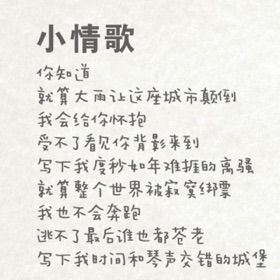 小情歌
你知道
就算大雨让这座城市颠倒
我会给你怀抱
受不了看见你背影来到
写下我度秒如年难捱的离骚
就算整个世界被寂寞绑票
我也不会奔跑
逃不了最后谁也都苍老
写下我时间和琴声交错的城堡